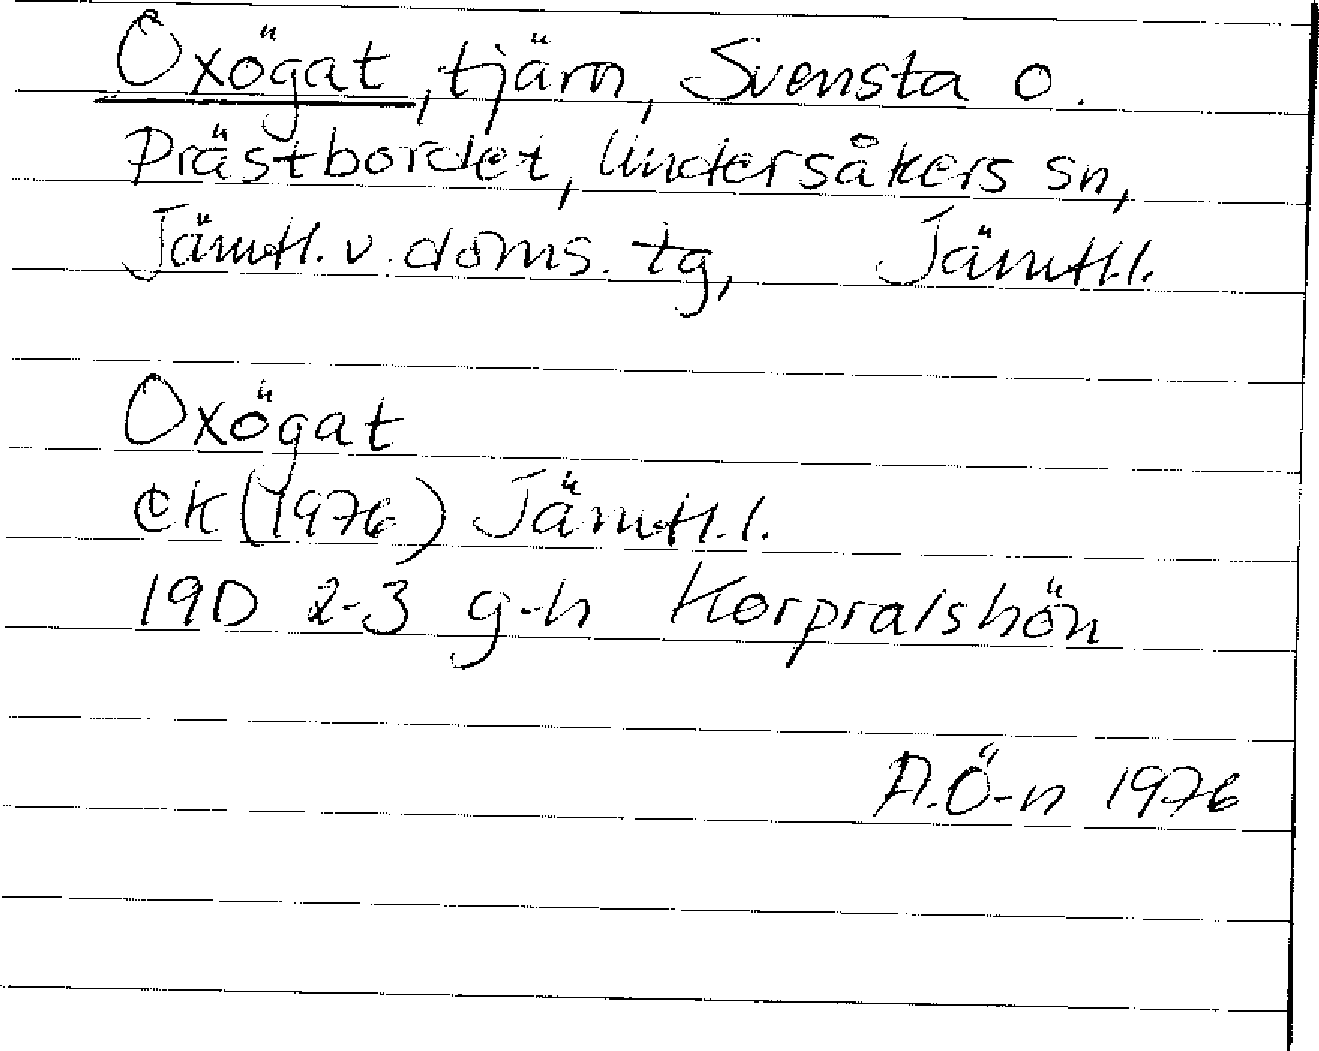 Oxögat, tjärn, Svensta o.
Prästbordet, Undersåkers sn,
Jämtl. v. doms. tg, Jämtl.l.
Oxögat
EK (1976) Jämtl.l.
19D 2-3 g-h Korpralshön
A.Ö-n 1976